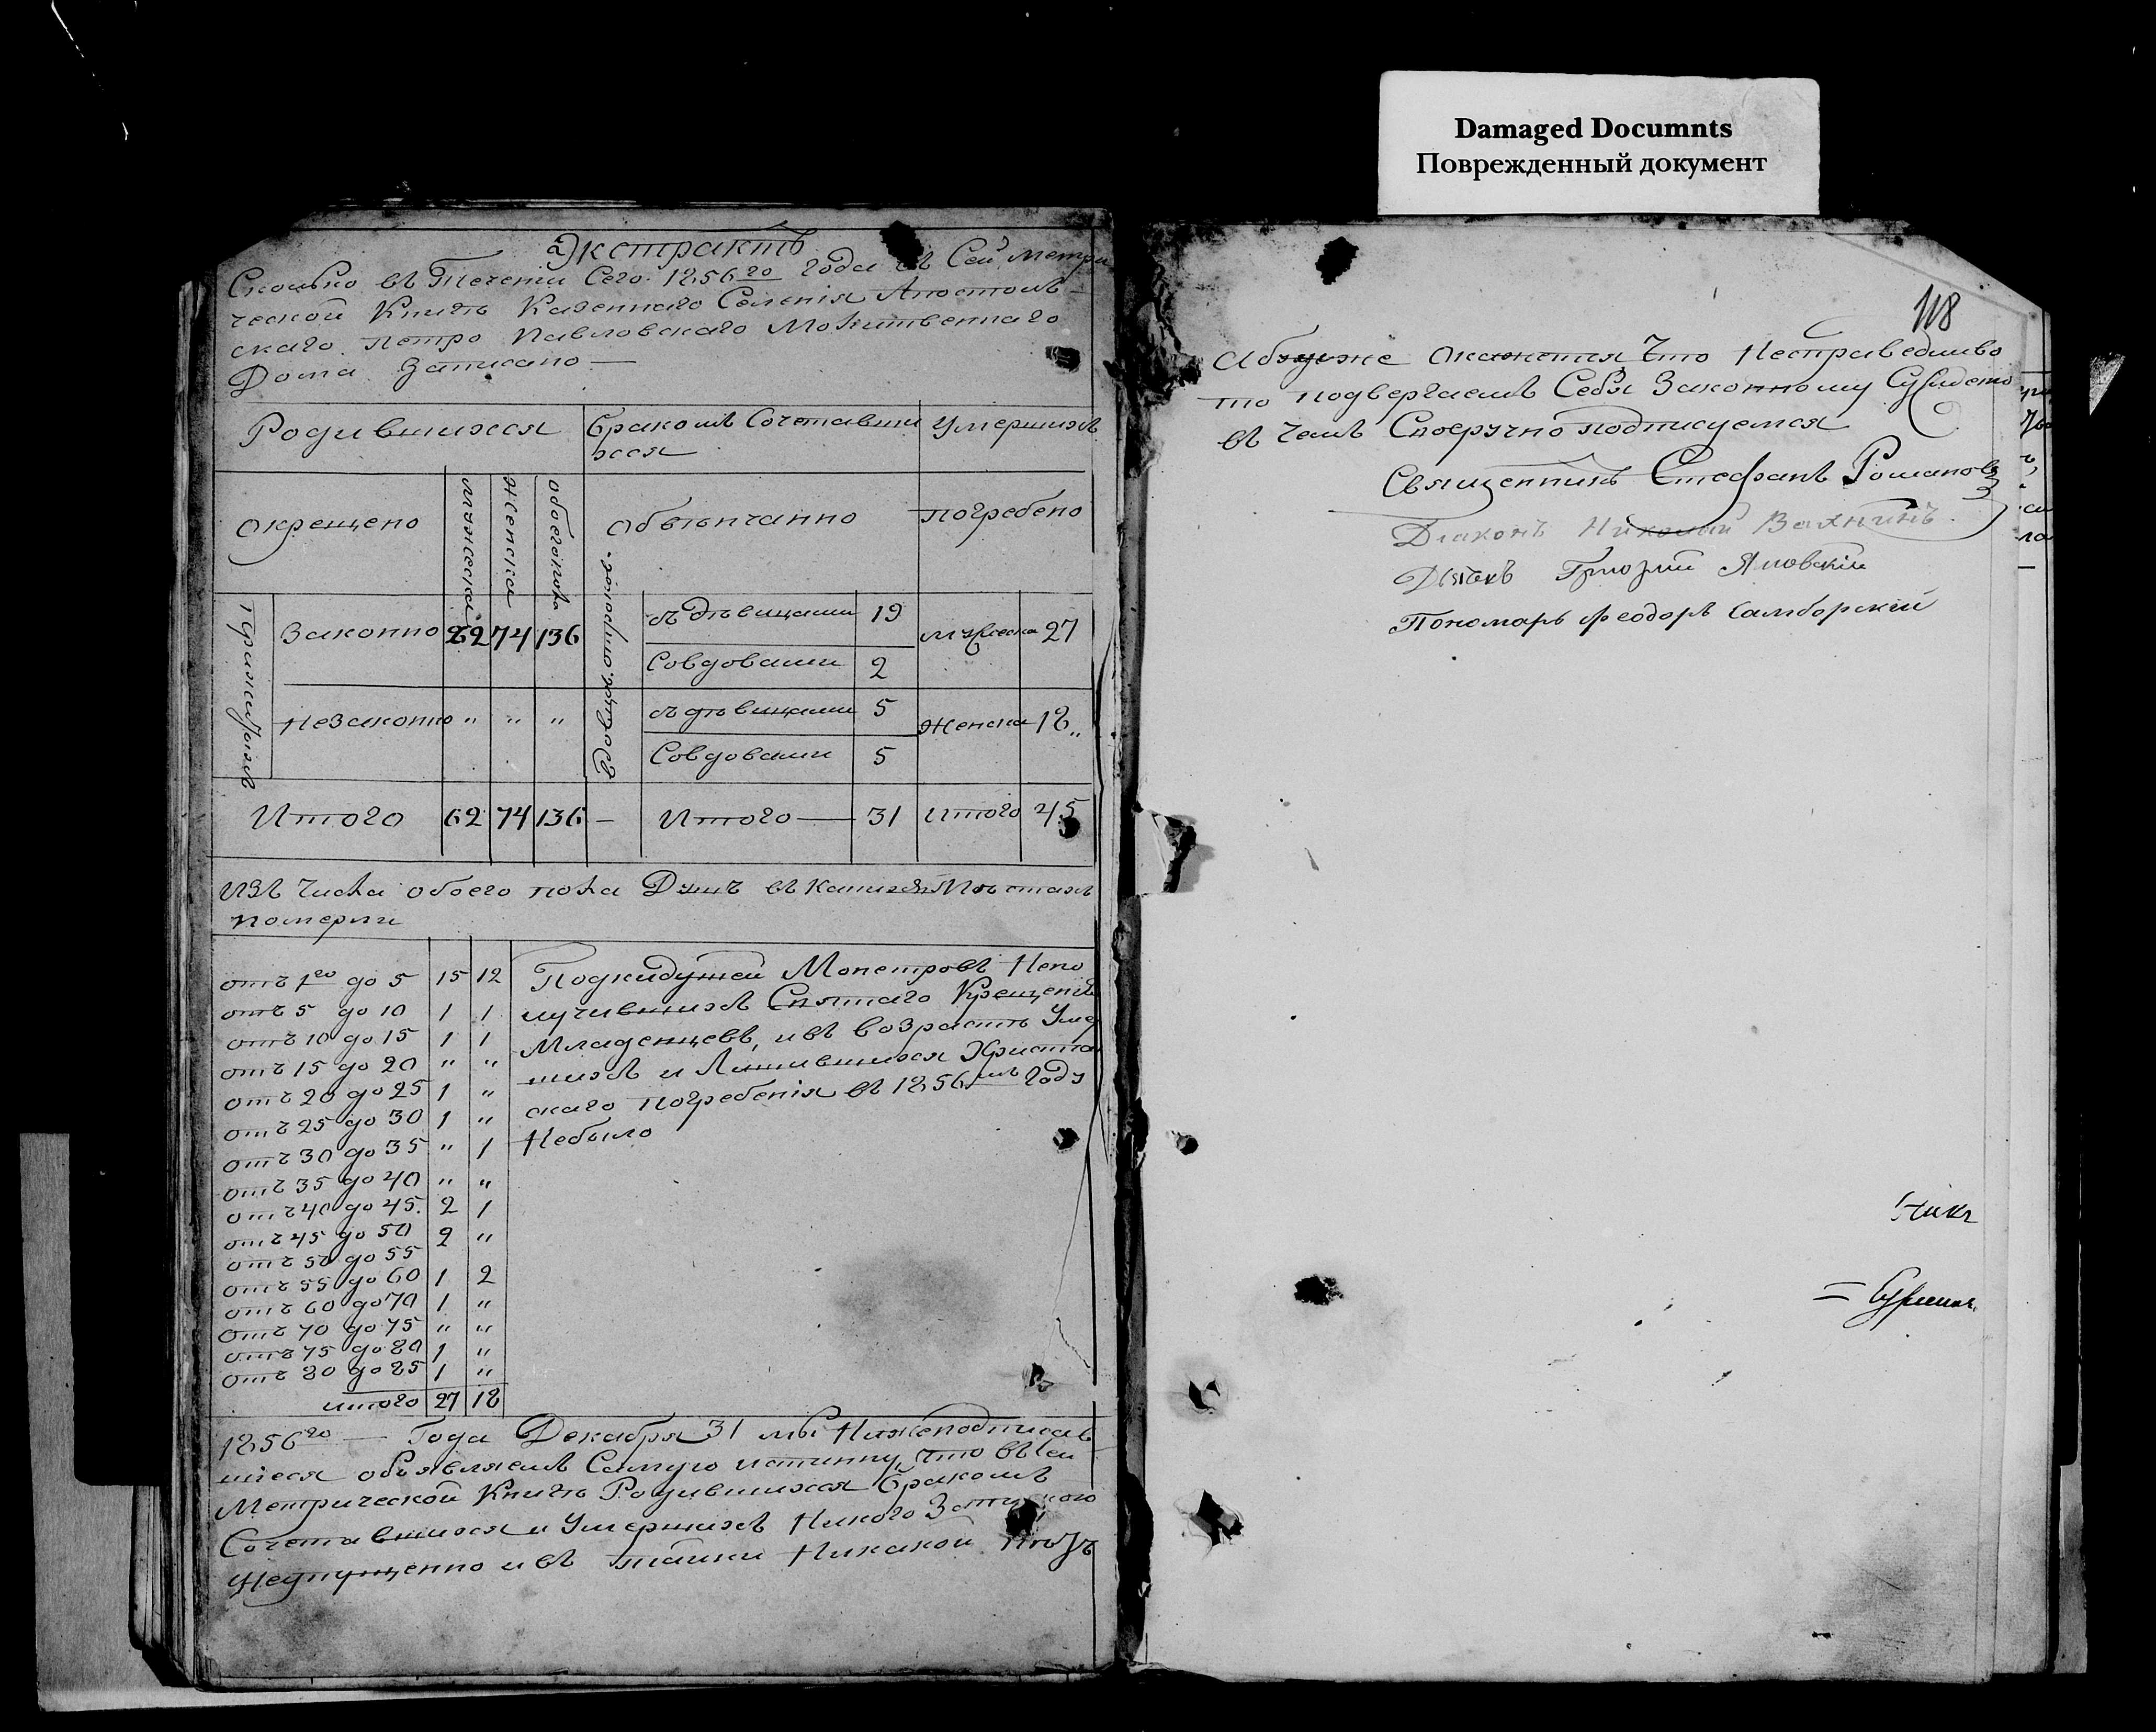 Damaged Documnts
Поврежденный документ
Экстрактъ
Сколько въ Течении Сего 1856го года въ Сей метри
ческой Книгѣ Казеннаго Селенія Апостолъ
скаго Петро Павловскаго Молитвеннаго
Дома Записано —
Родившихся
Бракомъ Сочетавши
хся
Умершихъ
Окрещено
Мужеска
Женска
обоегопола
Обвѣнчанно
погребено
Прижитыхъ
Законно 62 74 136
Незаконно „ „ „
съ дѣвицами 19
Совдовами 2
съ дѣвицами 5
Совдовами 5
Мужеска 27
Женска 18„
Итого 62 74 136 — Итого — 31 Итого 45
Изъ Числа обоего пола Душъ въ лѣтахъ
померли
отъ 1го до 5 15 12
отъ 5 до 10 1 1
отъ 10 до 15 1 1
отъ 15 до 20 „ „
отъ 20 до 25 1 „
отъ 25 до 30 1 „
отъ 30 до 35 „ 1
отъ 35 до 40 „ „
отъ 40 до 45. 2 1
отъ 45 до 50 2 „
отъ 50 до 55
отъ 55 до 60 1 2
отъ 60 до 70 1 „
отъ 70 до 75 „ „
отъ 75 до 80 1 „
отъ 80 до 85 1 „
итого 27 18
Подкидушей Монстровъ Непо
лучившихъ Святаго Крещенія
Младенцевъ, ивъ возрастѣ Умер
шихъ и Лишившихся Христіан
скаго погребенія въ 1856мъ Году
Небыло
1856го — Года Декабря 31 мы Нижеподписав
шіеся объявляемъ Самую истинну, что въсей
Метрической Книгѣ Родившихся Бракомъ
Сочетавшихся и Умершихъ Никого
Неупущенно ивъ Никакой
118
Абуде же Окажется Что Несправедливо
то подвергаемъ Себя Законному Суждению
въ чемъ Своеручно подписуемся
Священникъ Стефанъ Романовъ
Діаконъ Николай
Дьякъ Григорий Яновскій
Пономарь Феодоръ Самборский